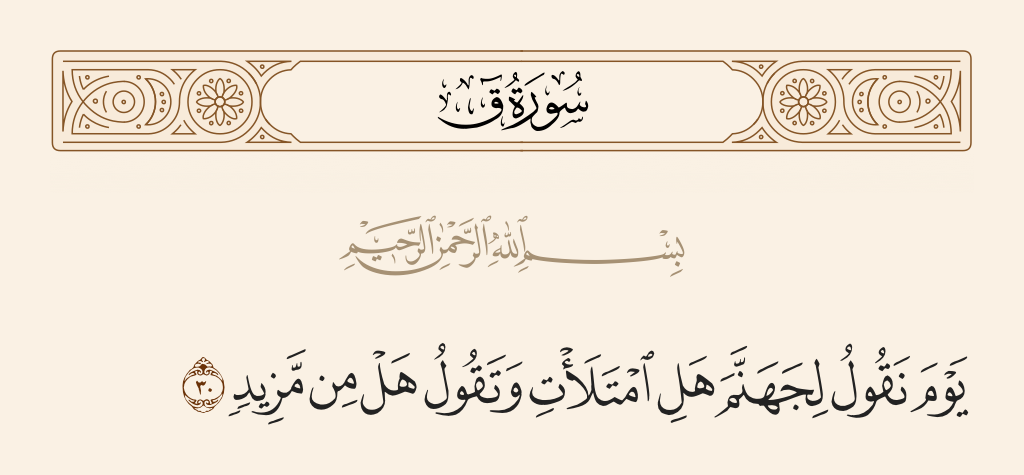 سُورَةُ قٓ
بِسْمِ ٱللَّهِ ٱلرَّحْمَٰنِ ٱلرَّحِيمِ
يَوْمَ نَقُولُ لِجَهَنَّمَ هَلِ ٱمْتَلَأْتِ وَتَقُولُ هَلْ مِن مَّزِيدٍ ٣٠